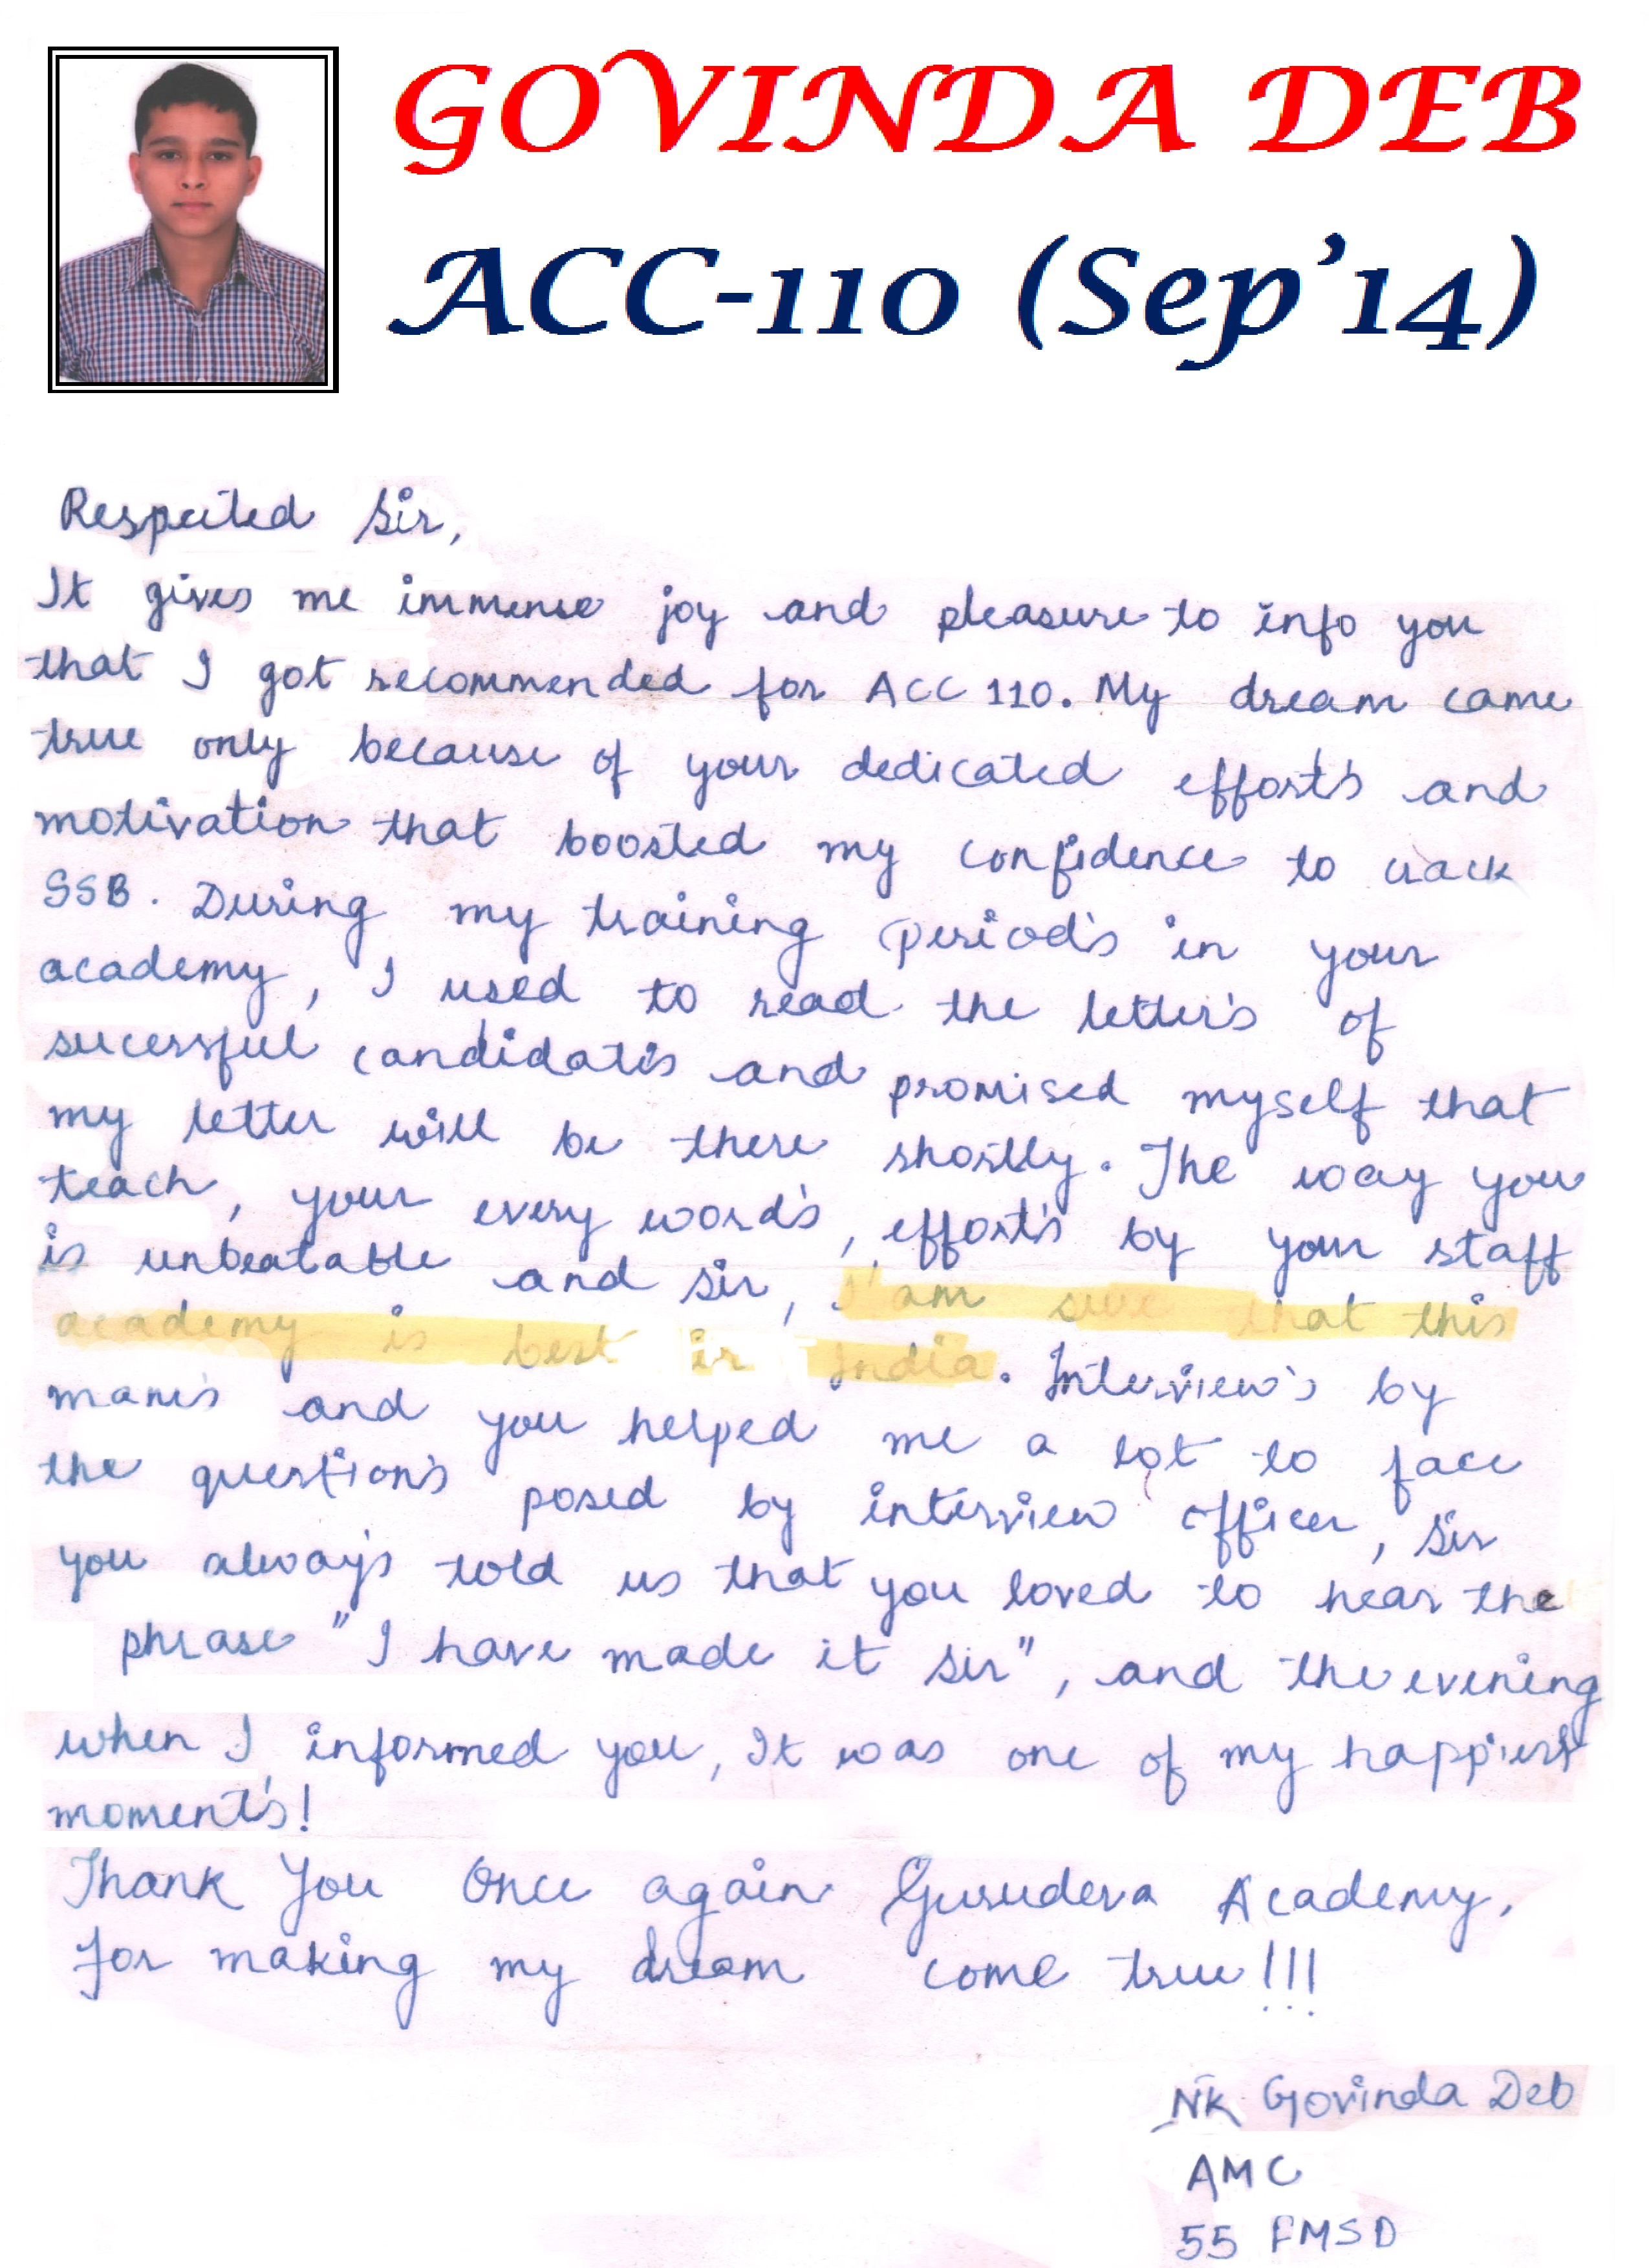 GOVINDA DEB
ACC-110 (Sep'14)
Respected Sir,
It gives me immense joy and pleasure to info you
that I got recommended for ACC 110. My dream came
true only because of your dedicated effort's and
motivation that boosted my confidence to crack
SSB. During my training period's in your
academy, I used to read the letter's of
sucessful candidate's and promised myself that
my letter will be there shortly. The way you
teach, your every word's, effort's by your staff
is unbeatable and sir, I'am sure that this
academy is best in India. Interview's by
mam's and you helped me a lot to face
the question's posed by interview officer, Sir
you alway's told us that you loved to hear the
phrase "I have made it sir", and the evening
when I informed you, It was one of my happiest
moment's!
Thank You Once again Gurudeva Academy,
for making my dream come true!!!
NK Govinda Deb
AMC
55 FMSD